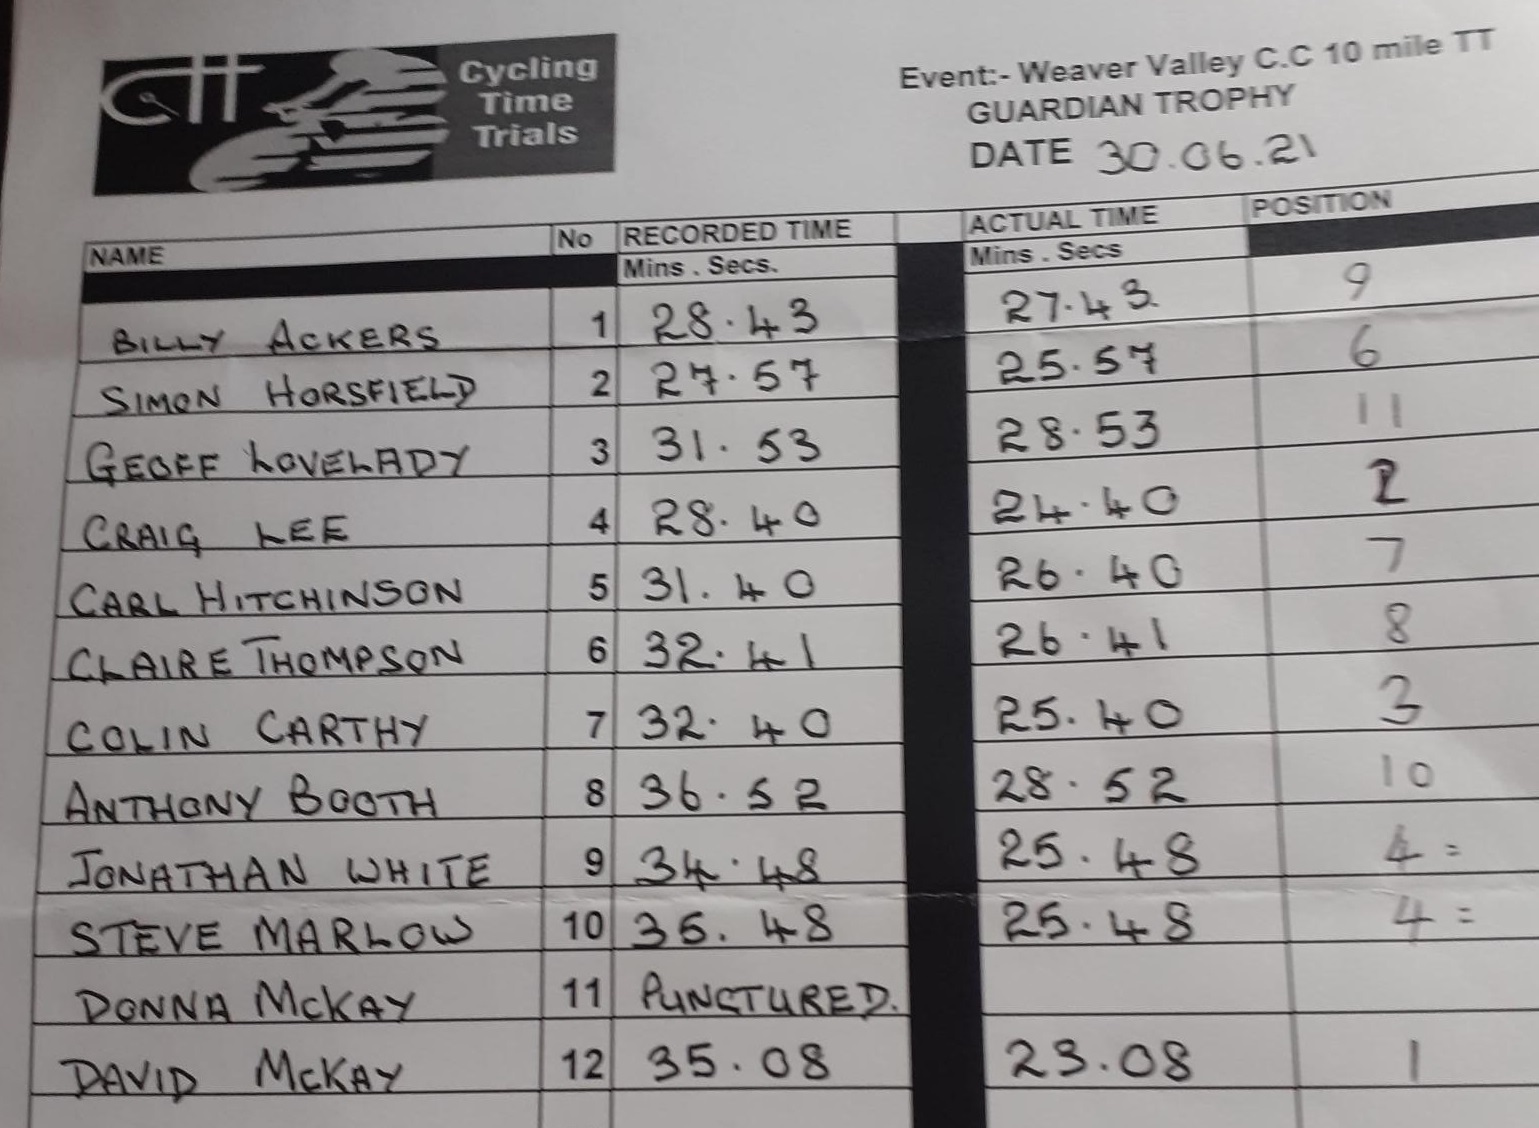 CTT Cycling Time Trials
Event:- Weaver Valley C.C 10 mile TT
GUARDIAN TROPHY
DATE 30.06.21
NAME No RECORDED TIME ACTUAL TIME POSITION
Mins . Secs. Mins . Secs
BILLY ACKERS 1 28.43 27.43. 9
SIMON HORSFIELD 2 27.57 25.57 6
GEOFF LOVELADY 3 31.53 28.53 11
CRAIG LEE 4 28.40 24.40 2
CARL HITCHINSON 5 31.40 26.40 7
CLAIRE THOMPSON 6 32.41 26.41 8
COLIN CARTHY 7 32.40 25.40 3
ANTHONY BOOTH 8 36.52 28.52 10
JONATHAN WHITE 9 34.48 25.48 4=
STEVE MARLOW 10 35.48 25.48 4=
DONNA McKAY 11 PUNCTURED.
DAVID McKAY 12 35.08 23.08 1